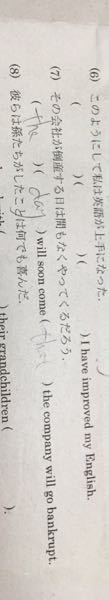 (6) このようにして私は英語が上手になった.
( )( )( ) I have improved my English.
(7) その会社が倒産する日は間もなくやってくるだろう.
( the )( day ) will soon come ( that ) the company will go bankrupt.
(8) 彼らは孫たちがしたことは何でも喜んだ.
) their grandchildren ( ).